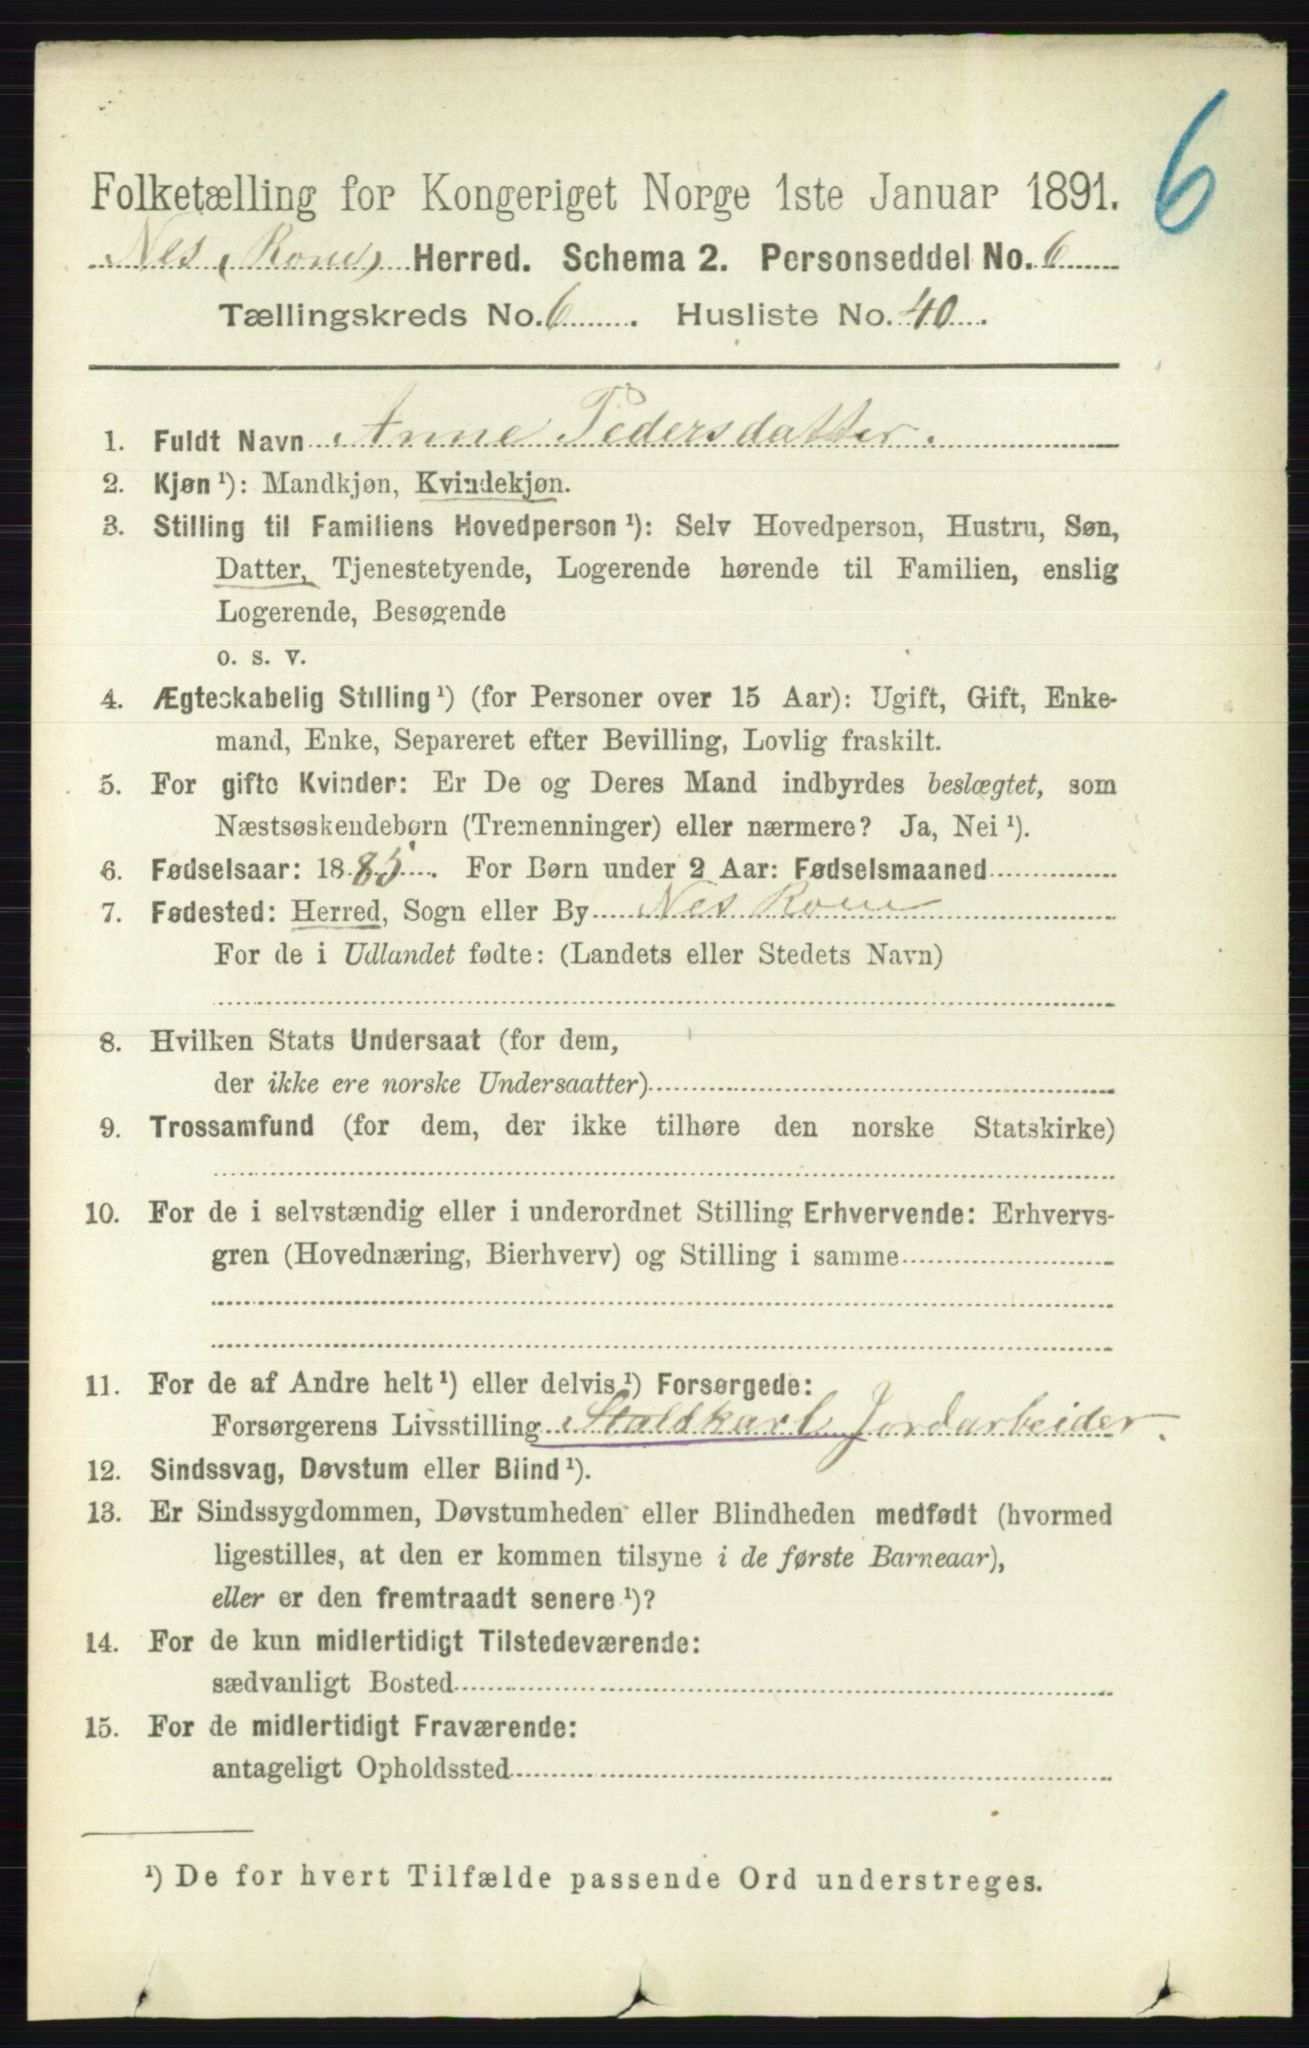 6
Folketælling for Kongeriget Norge 1ste Januar 1891.
Nes (Rome) Herred. Schema 2. Personseddel No. 6
Tællingskreds No. 6. Husliste No. 40.
1. Fuldt Navn Anne Pedersdatter.
2. Kjøn ¹): Mandkjøn, Kvindekjøn.
3. Stilling til Familiens Hovedperson ¹): Selv Hovedperson, Hustru, Søn,
Datter, Tjenestetyende, Logerende hørende til Familien, enslig
Logerende, Besøgende
o. s. v.
4. Ægteskabelig Stilling ¹) (for Personer over 15 Aar): Ugift, Gift, Enke-
mand, Enke, Separeret efter Bevilling, Lovlig fraskilt.
5. For gifte Kvinder: Er De og Deres Mand indbyrdes beslægtet, som
Næstsøskendebørn (Tremenninger) eller nærmere? Ja, Nei ¹).
6. Fødselsaar: 1885. For Børn under 2 Aar: Fødselsmaaned
7. Fødested: Herred, Sogn eller By Nes Rome
For de i Udlandet fødte: (Landets eller Stedets Navn)
8. Hvilken Stats Undersaat (for dem,
der ikke ere norske Undersaatter)
9. Trossamfund (for dem, der ikke tilhøre den norske Statskirke)
10. For de i selvstændig eller i underordnet Stilling Erhvervende: Erhvervs-
gren (Hovednæring, Bierhverv) og Stilling i samme
11. For de af Andre helt ¹) eller delvis ¹) Forsørgede:
Forsørgerens Livsstilling Staldkarl Jordarbeider.
12. Sindssvag, Døvstum eller Blind ¹).
13. Er Sindssygdommen, Døvstumheden eller Blindheden medfødt (hvormed
ligestilles, at den er kommen tilsyne i de første Barneaar),
eller er den fremtraadt senere ¹)?
14. For de kun midlertidigt Tilstedeværende:
sædvanligt Bosted
15. For de midlertidigt Fraværende:
antageligt Opholdssted
¹) De for hvert Tilfælde passende Ord understreges.